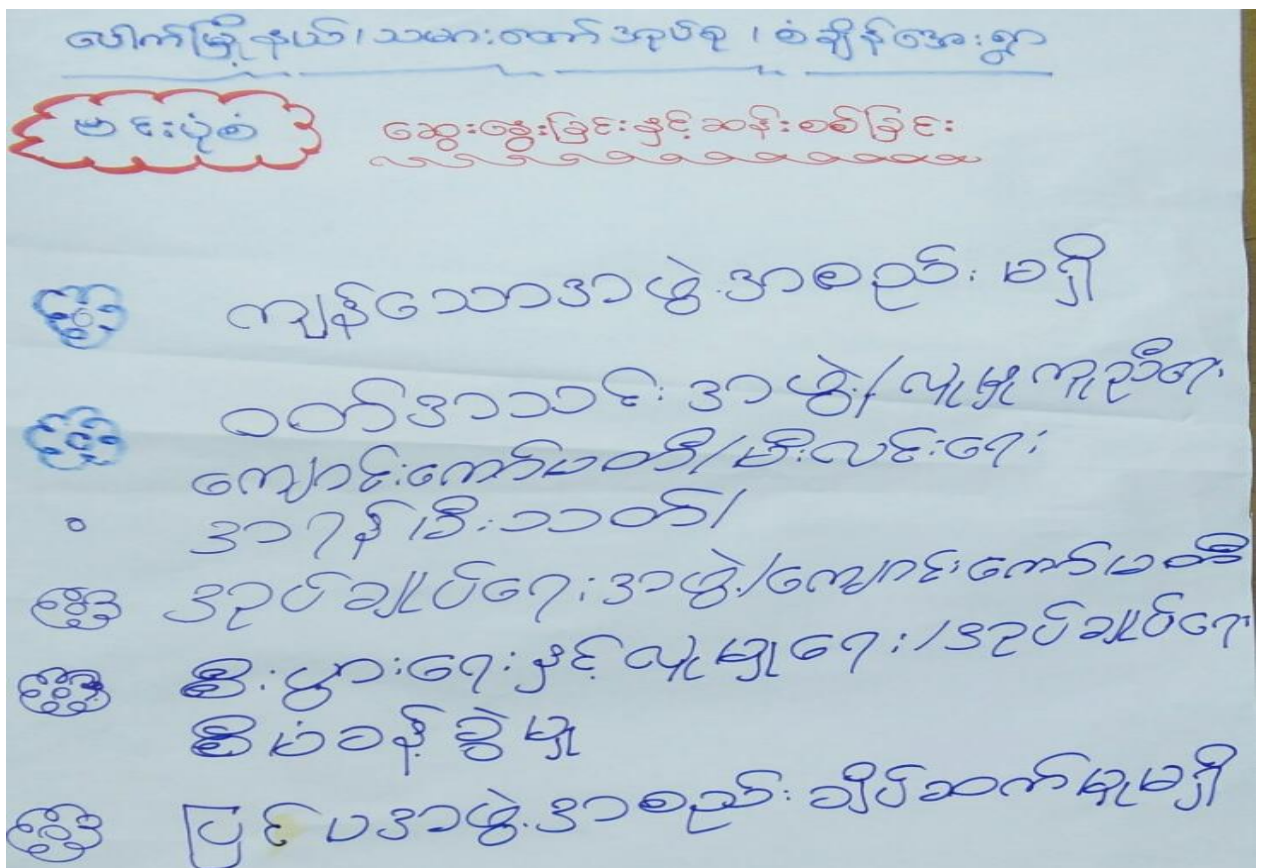 ပေါက်မြို့နယ်၊သမားတော်အုပ်စု၊စံချိန်အေးရွာ
ဗင်းပုံစံ ဆွေးနွေးခြင်းနှင့်ဆန်းစစ်ခြင်း
ကျန်သောအဖွဲ့အစည်း မရှိ
ဝတ်အသင်းအဖွဲ့/လူမှုကူညီရေး
ကျောင်းကော်မတီ/မီးလင်းရေး
အရန်မီးသတ်/
အုပ်ချုပ်ရေးအဖွဲ့/ကျောင်းကော်မတီ
စီးပွားရေးနှင့်လူမှုရေး/အုပ်ချုပ်ရေး
စီမံခန့်ခွဲမှု
ပြင်ပအဖွဲ့အစည်း ချိပ်ဆက်မှုမရှိ